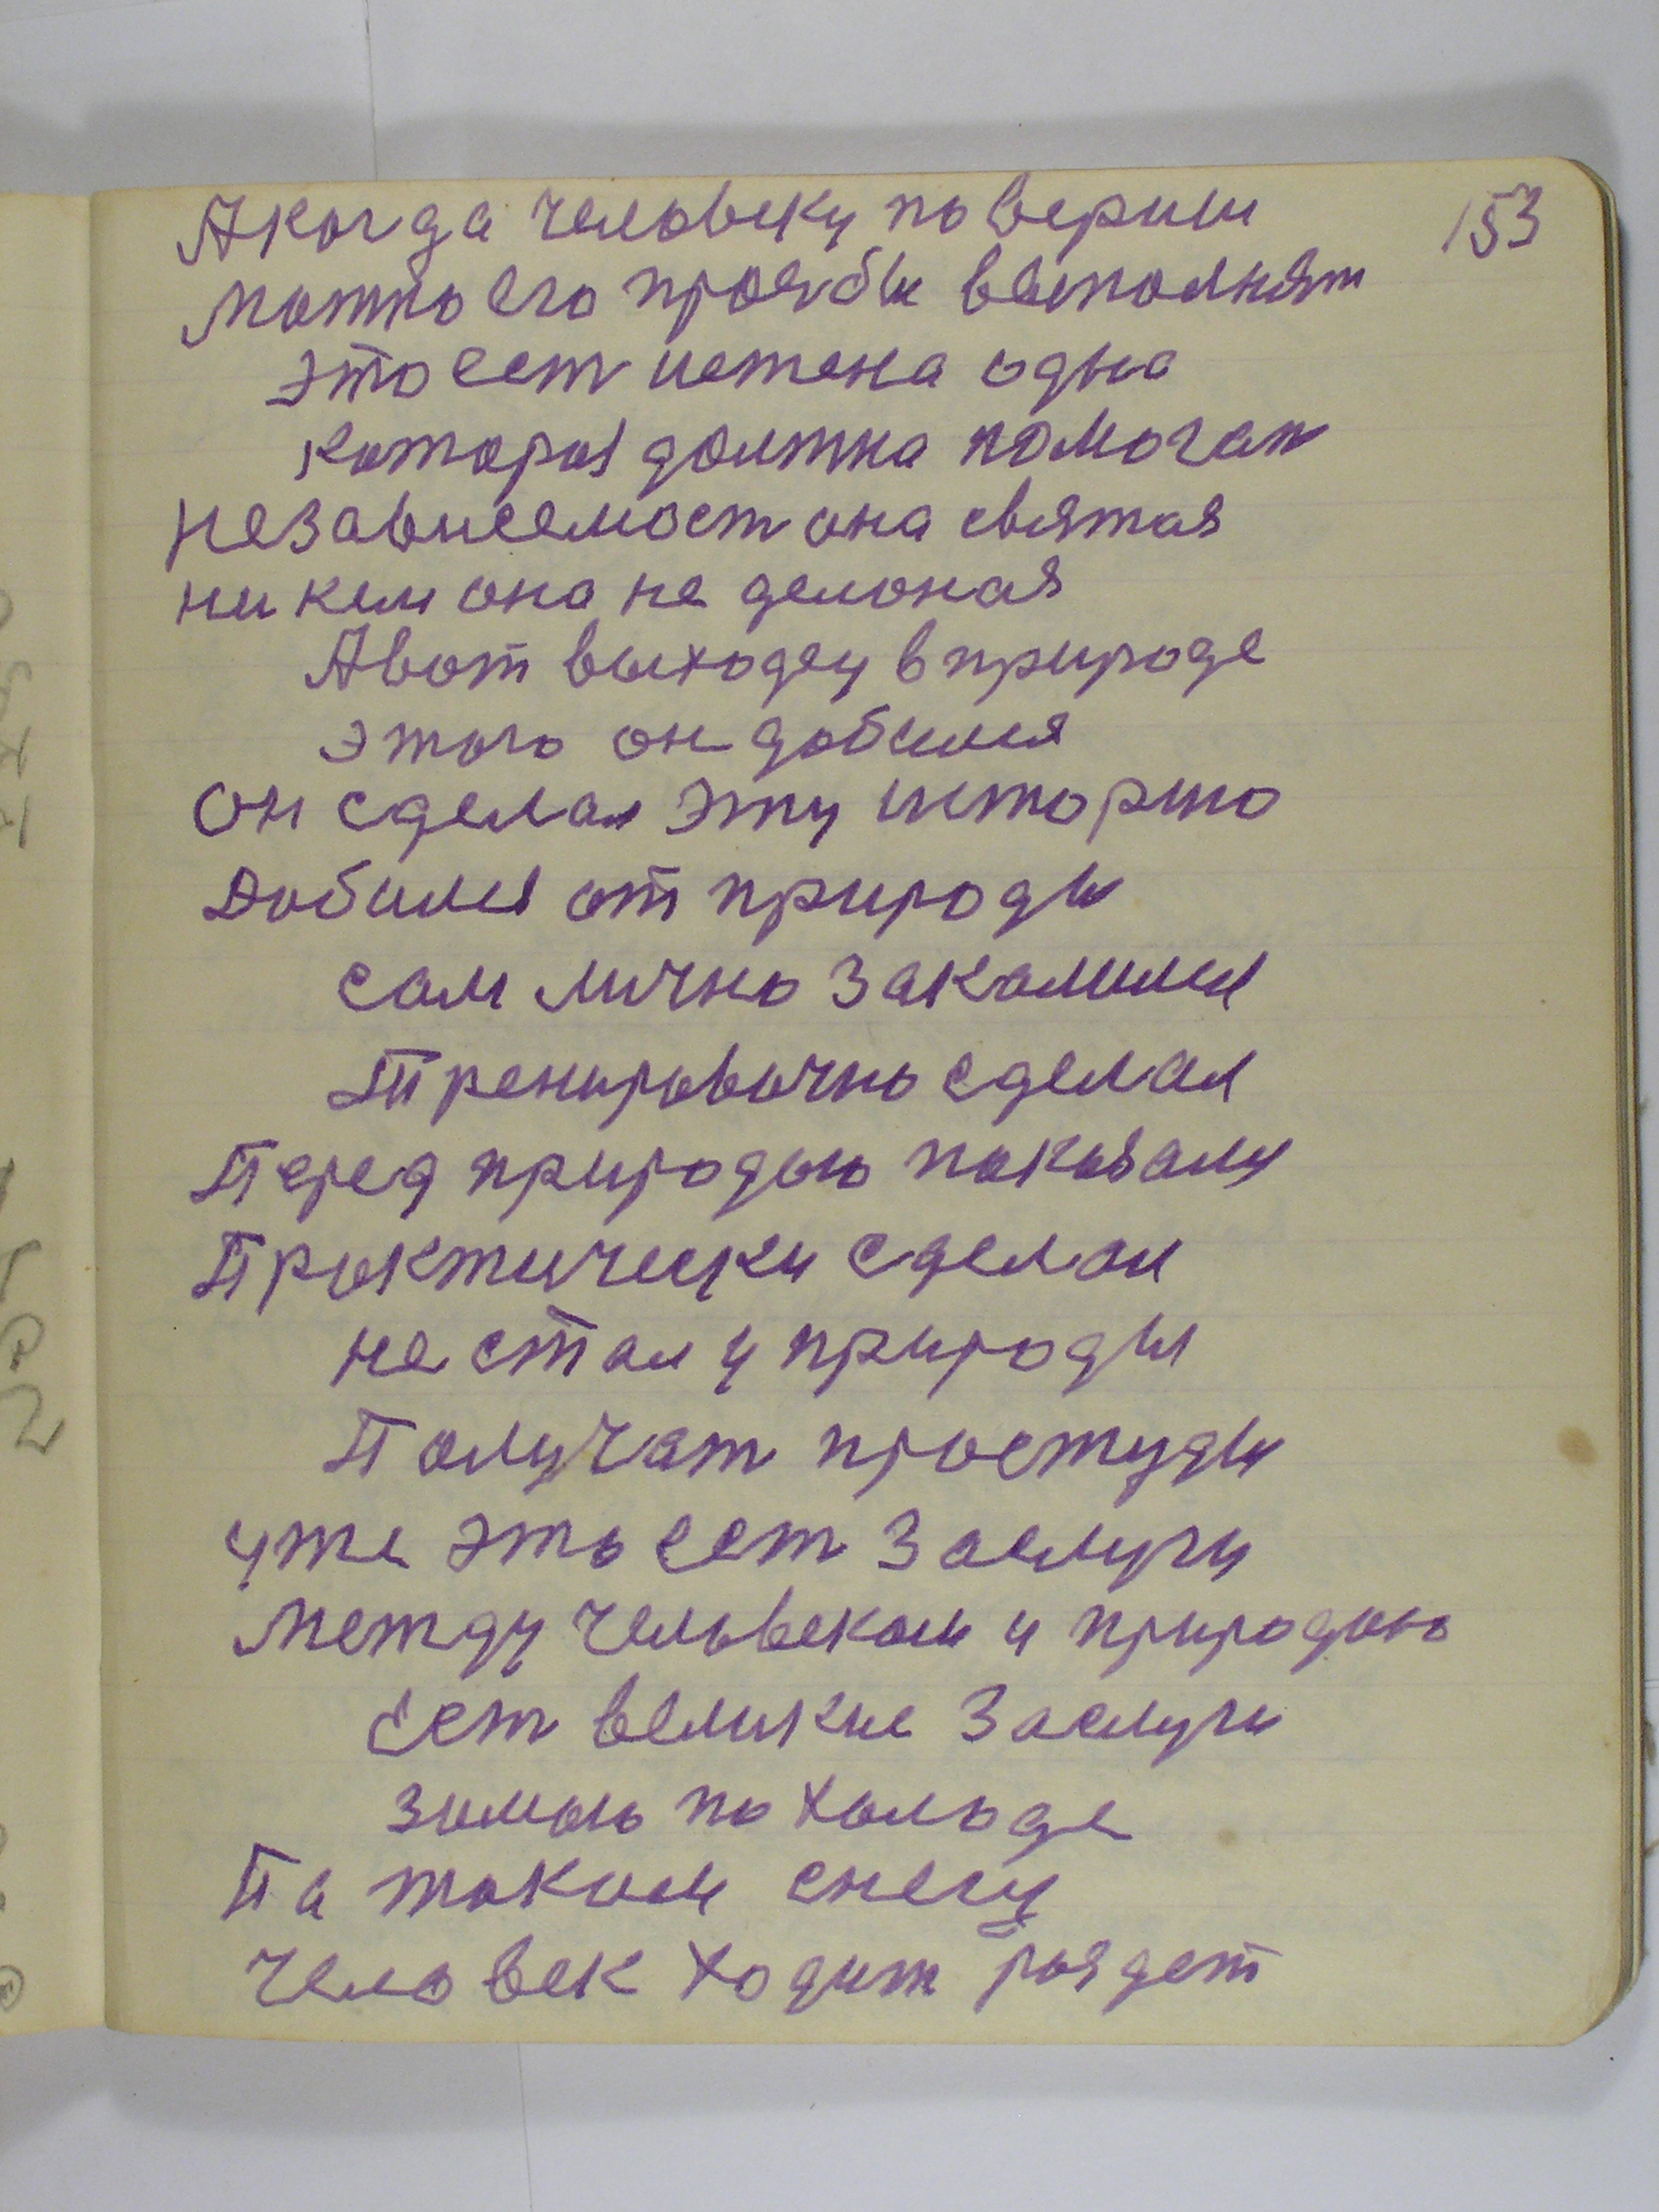 153
А когда человеку поверим
можно его прозьбы выполнят
это ест истена одна
которая должна помогат
Независемост она святая
ни кем она не делоная
А вот выходец в природе
этого он добился
Он сделал эту исторею
Добился от природы
сам лично закалился
Тренировочно сделал
Перед природою показали
Практически сделал
не стал у природы
Получат простуды
уже это ест заслуги
между человеком и природою
Ест великие заслуги
зимою по холоде
Па таком снегу
человек ходит